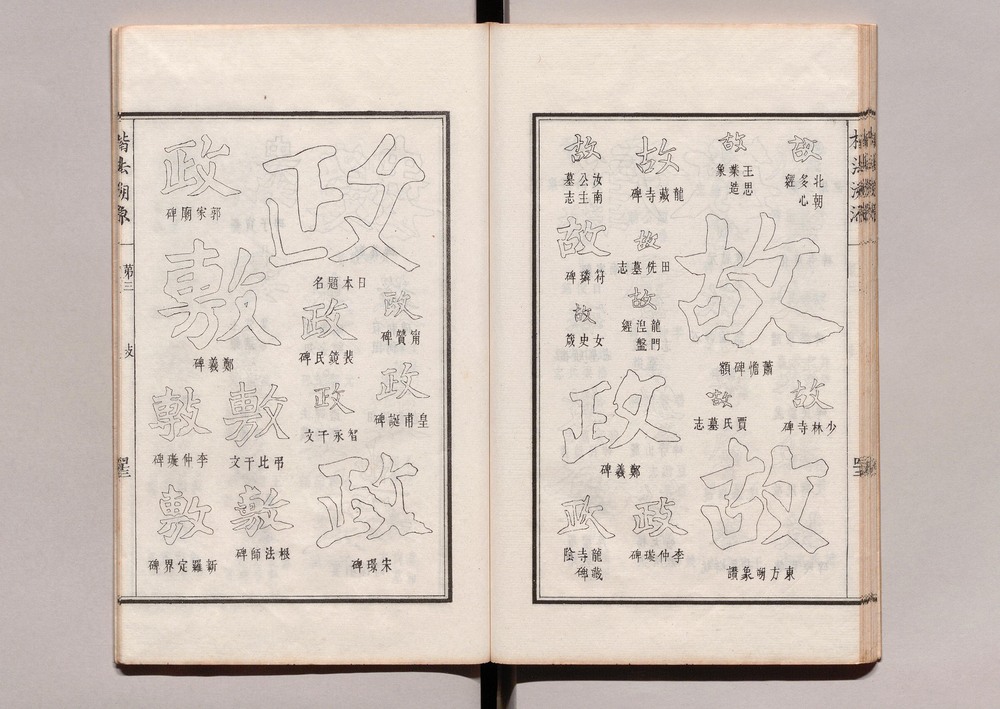 故
北朝
多心
經
故
王思
業造
象
故
龍藏寺碑
故
汝南
公主
墓志
故
蕭憺碑額
故
田侁墓志
故
符璘碑
故
龍門
涅盤
經
故
女史箴
故
少林寺碑
故
賈氏墓志
政
鄭羲碑
故
東方朔象讚
政
李仲璇碑
政
龍藏
寺碑
陰
政
日本題名
政
郭家廟碑
政
甯贊碑
政
裴鏡民碑
敷
鄭羲碑
政
皇甫誕碑
政
智永千文
敷
弔比干文
敷
李仲璇碑
政
宋璟碑
敷
根法師碑
敷
新羅定界碑
楷法溯原
第三
攴